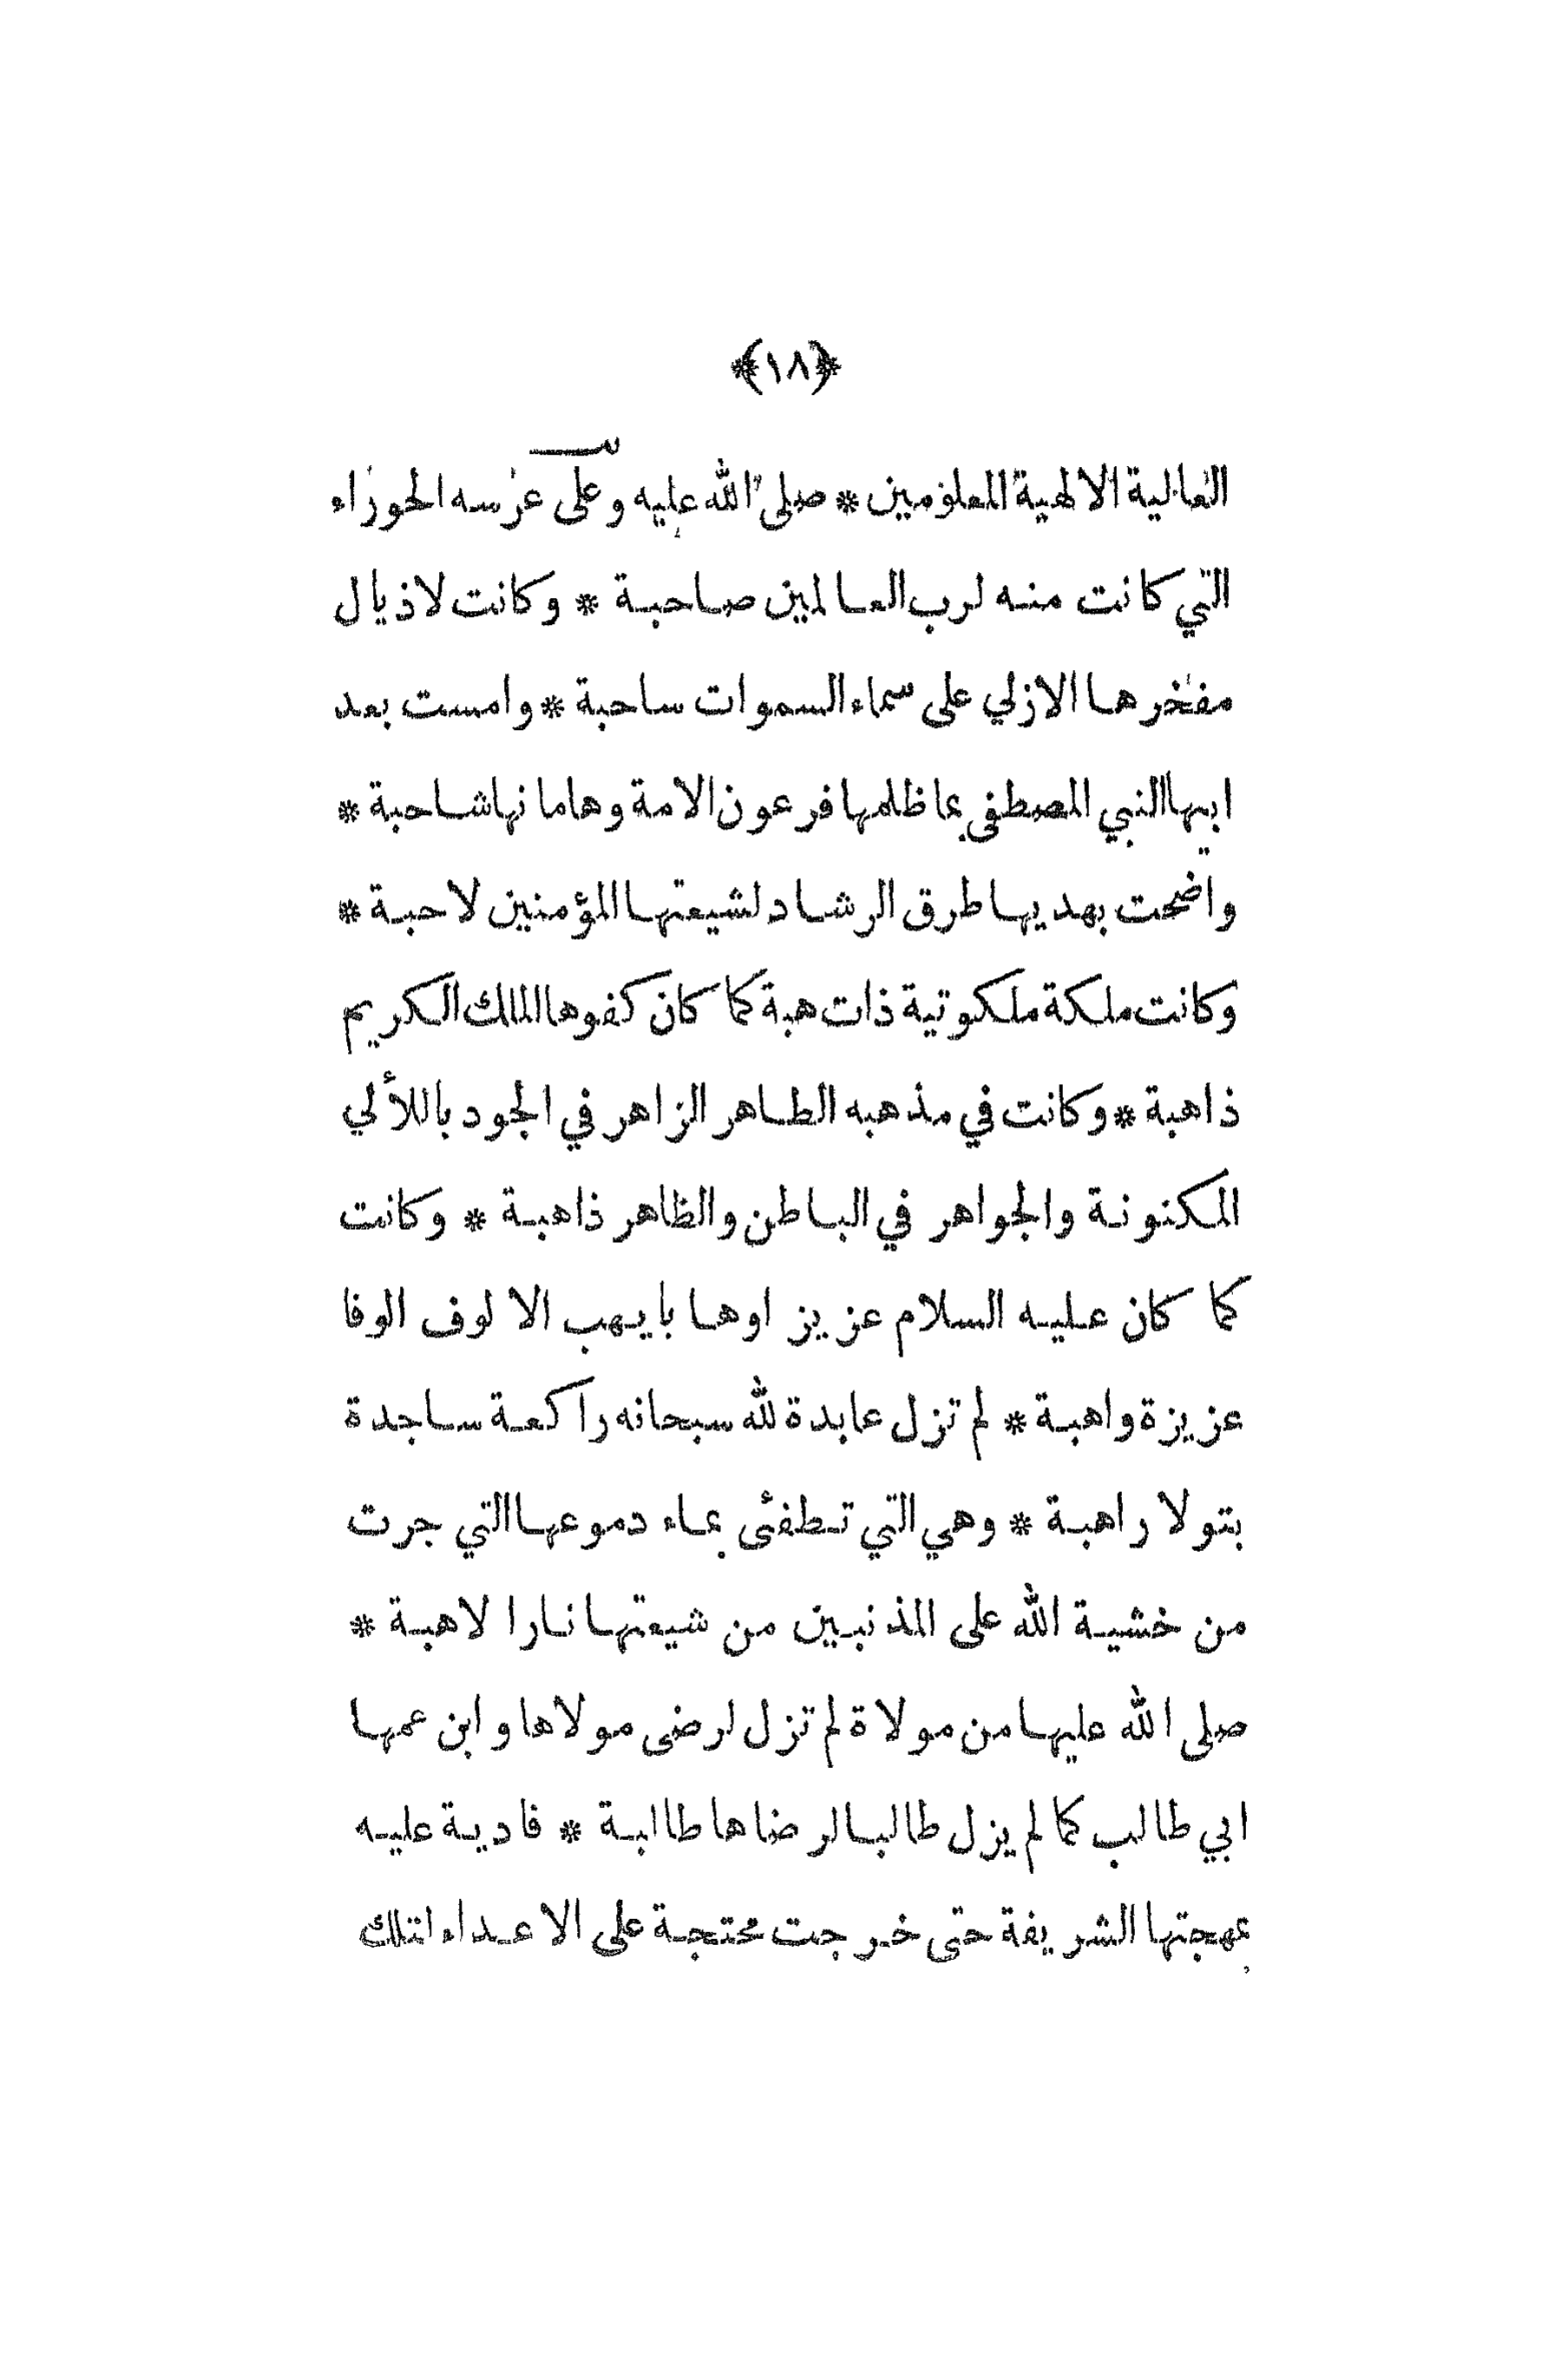 ﴿١٨﴾
العالية الالهية المعلومين * صلى الله عليه وعلى عرسه الحوراء
التي كانت منه لرب العالمين صاحبة * وكانت لاذيال
مفخرها الازلي على سماء السموات ساحبة * وامست بعد
ابيها النبي المصطفى بما ظلمها فرعون الامة وهامانها شاحبة *
واضحت بهديها طرق الرشاد لشيعتها المؤمنين لاحبة *
وكانت ملكة ملكوتية ذات هبة كما كان كفوها الملك الكريم
ذاهبة * وكانت في مذهبه الطاهر الزاهر في الجود باللألي
المكنونة والجواهر في الباطن والظاهر ذاهبة * وكانت
كما كان عليه السلام عزيز اوهابا يهب الالوف الوفا
عزيزة واهبة * لم تزل عابدة لله سبحانه راكعة ساجدة
بتولا راهبة * وهي التي تطفئى بماء دموعها التي جرت
من خشية الله على المذنبين من شيعتها نارا لاهبة *
صلى الله عليها من مولاة لم تزل لرضى مولاها وابن عمها
ابي طالب كما لم يزل طالبا لرضاها طالبة * فادية عليه
بمهجتها الشريفة حتى خرجت محتجة على الاعداء لتلك